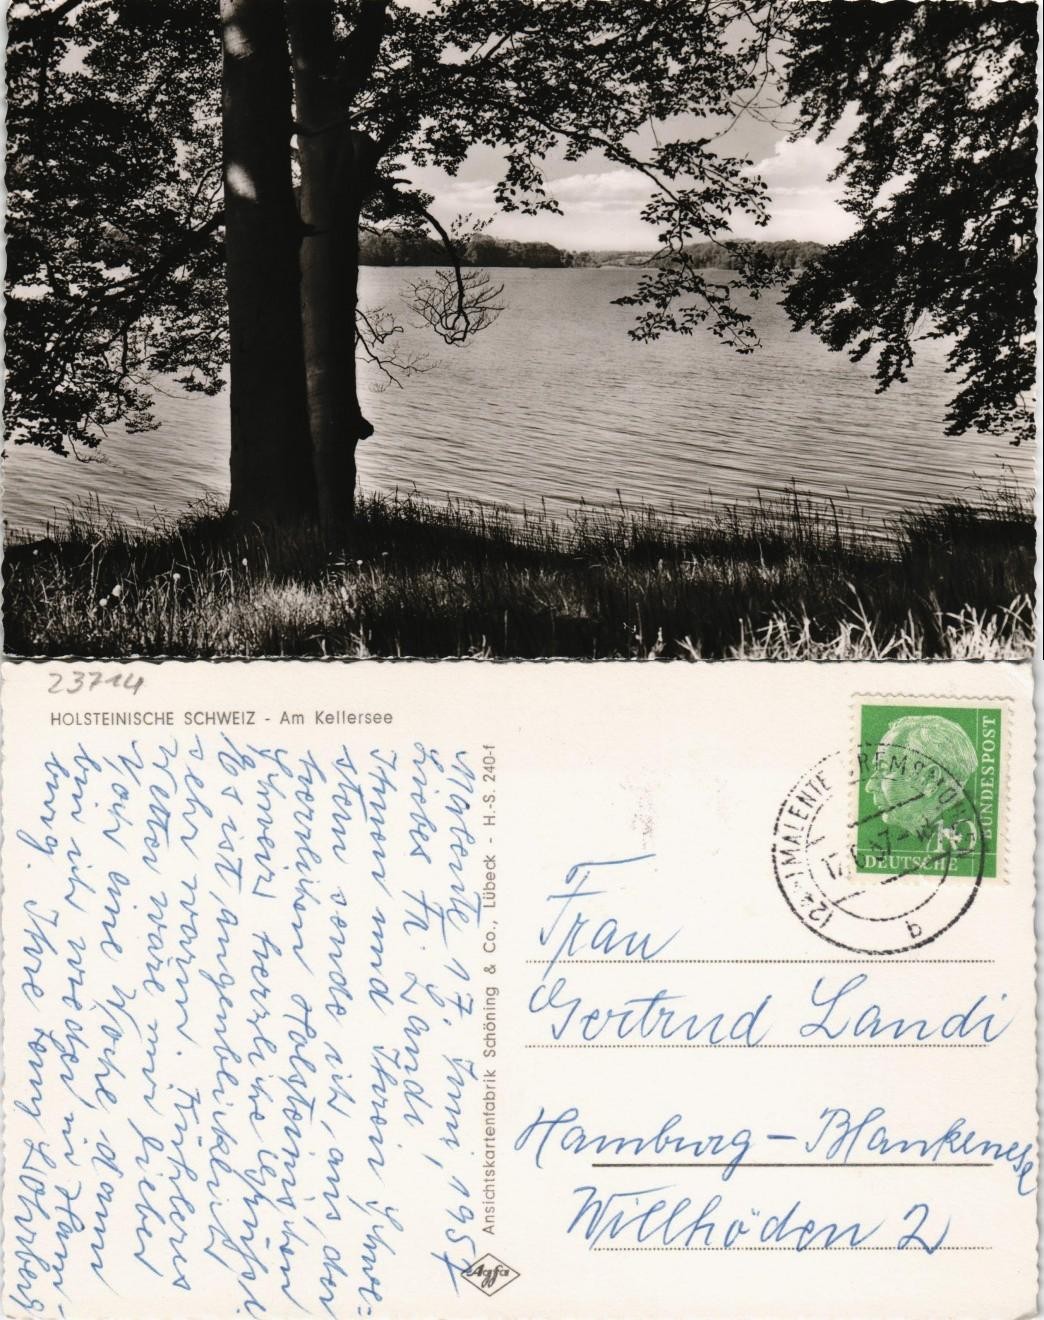 23714
HOLSTEINISCHE SCHWEIZ - Am Kellersee
Malente 17. Juni, 1957
Liebe Fr. Landi,
Ihnen und Ihren Schwe=
stern sende ich, aus der
herrlichen Holsteinischen
Schweiz herzliche Grüße.
Es ist augenblicklich
sehr warm. Kühleres
Wetter wäre mir lieber
Noch eine Woche, dann
bin ich wieder in Ham-
burg. Ihre
Ansichtskartenfabrik Schöning & Co., Lübeck - H.-S. 240-f
Agfa
DEUTSCHE
BUNDESPOST
MALENTE
b
Frau
Gertrud Landi
Hamburg - Blankenese
Willhöden 2